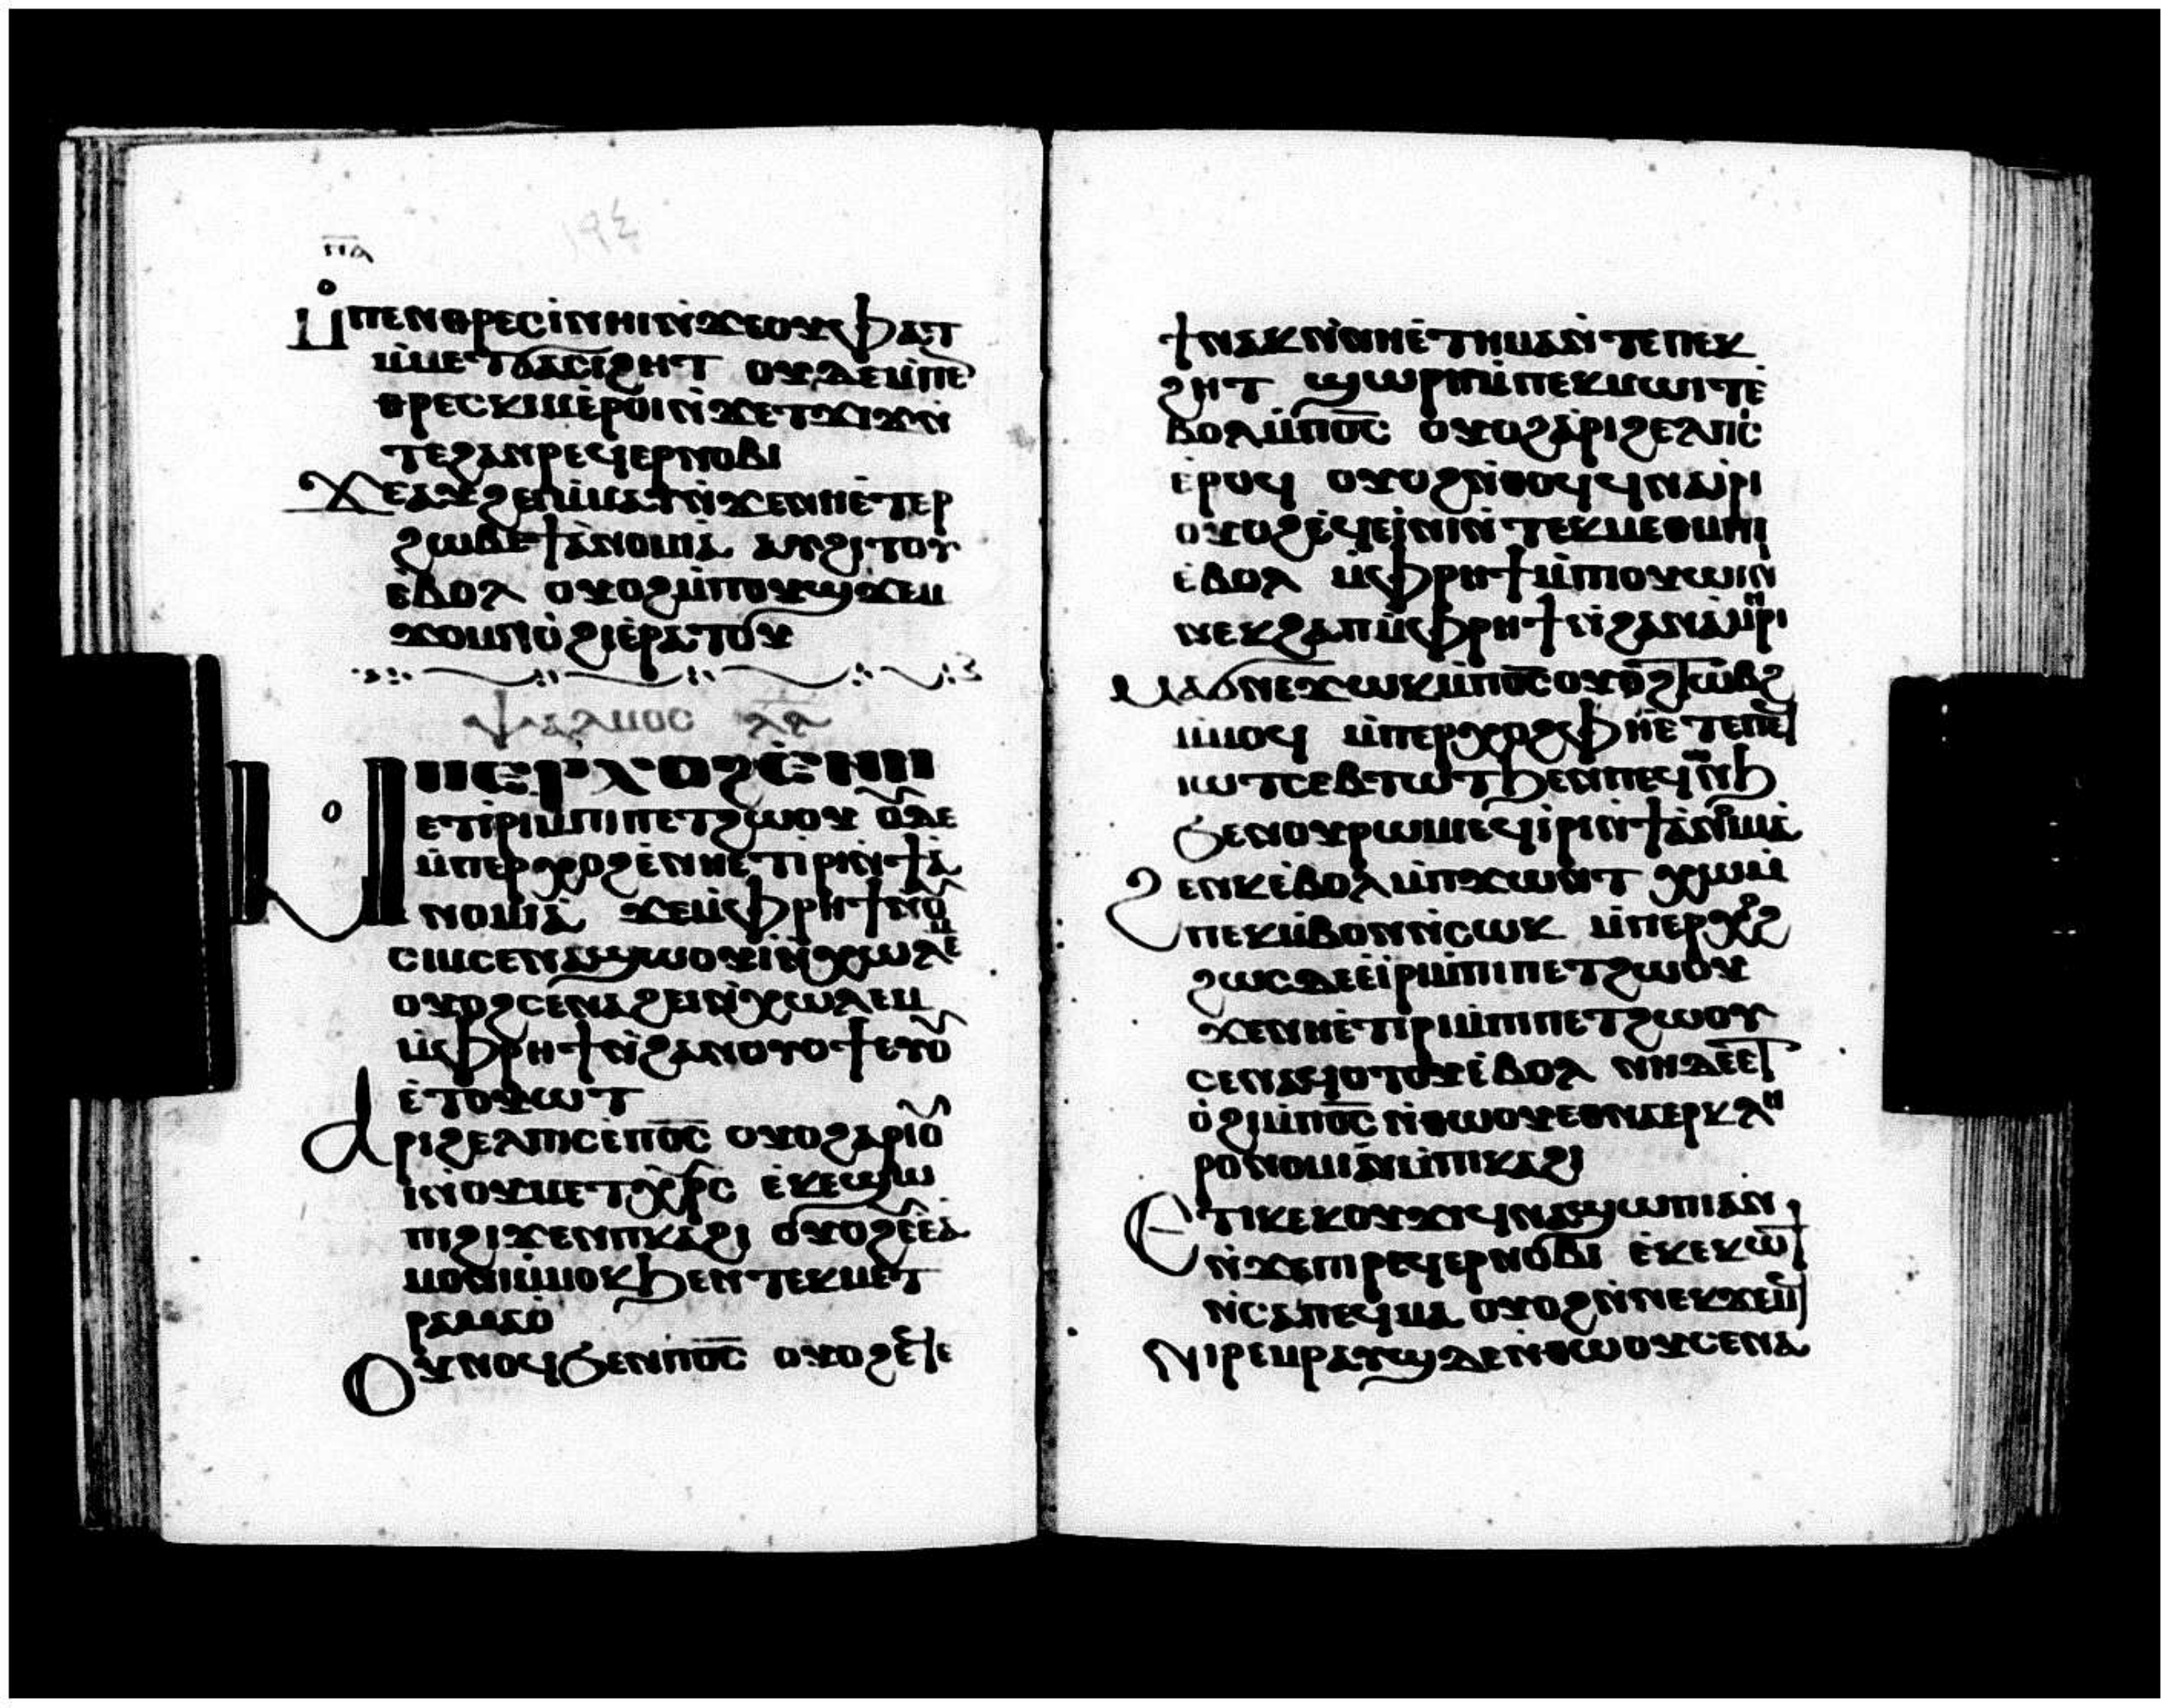 ⲡⲁ
١٩٤
ⲙ̇ⲡⲉⲛⲑⲣⲉⲥⲓ̀ⲛⲏⲓⲛ̀ϫⲉⲟⲩϥⲁⲧ
ⲙ̀ⲙⲉⲧϭⲁⲥⲓϩⲏⲧ ⲟⲩⲇⲉⲙ̀ⲡⲉ
ⲑⲣⲉⲥⲕⲓⲙⲉ̀ⲣⲟⲓⲛ̀ϫⲉⲧϫⲓϫⲛ̀
ⲧⲉϩⲁⲛⲣⲉϥⲉⲣⲛⲟⲃⲓ
ϫⲉⲁⲩϩⲉⲓⲙ̀ⲙⲁⲩⲛ̀ϫⲉⲛⲏⲉ̀ⲧⲉⲣ
ϩⲱⲃⲉϯⲁ̀ⲛⲟⲙⲓⲁ̀ ⲁⲩϩⲓⲧⲟⲩ
ⲉ̀ⲃⲟⲗ ⲟⲩⲟϩⲙ̀ⲡⲟⲩϣϫⲉⲙ
ϫⲟⲙⲛ̀ⲟ̀ϩⲓⲉ̀ⲣⲁⲧⲟⲩ
ⲯⲁⲗⲙⲟⲥ ⲗ̅ⲋ̅
ⲙ̀ⲡⲉⲣⲭⲟϩⲉ̀ⲛⲏ
ⲉⲧⲓ̀ⲣⲓⲙ̀ⲡⲓⲡⲉⲧϩⲱⲟⲩ ⲟⲩⲇⲉ
ⲙ̀ⲡⲉⲣⲭⲟϩⲉ̀ⲛⲏⲉⲧⲓ̀ⲣⲓⲛ̀ϯⲁ̀
ⲛⲟⲙⲓⲁ̀ ϫⲉⲙ̀ⲫⲣⲏϯⲛ̀ⲟⲩ
ⲥⲓⲙⲥⲉⲛⲁϣⲱⲟⲩⲓ̀ⲛ̀ⲭⲱⲗⲉⲙ
ⲟⲩⲟϩⲥⲉⲛⲁϩⲉⲓⲛ̀ⲭⲱⲗⲉⲙ
ⲙ̀ⲫⲣⲏϯⲛ̀ϩⲁⲛⲟⲩⲟϯⲉⲩⲟⲩ
ⲉ̀ⲧⲟⲩⲱⲧ
ⲁⲣⲓϩⲉⲗⲡⲓⲥⲉ̀ⲡⲟ̅ⲥ̅ ⲟⲩⲟϩⲁ̀ⲣⲓⲟⲩ
ⲓ̀ⲛ̀ⲟⲩⲙⲉⲧⲭⲣ̅ⲥ ⲉ̀ⲕⲉϣⲱ
ⲡⲓϩⲓϫⲉⲛⲡⲕⲁϩⲓ ⲟⲩⲟϩⲉⲩⲉ̀ⲁ̀
ⲙⲟⲛⲓⲙ̀ⲙⲟⲕϧⲉⲛⲧⲉⲕⲙⲉⲧ
ⲣⲁⲙⲁⲟ̀
ⲟⲩⲛⲟϥϧⲉⲛⲡⲟ̅ⲥ̅ ⲟⲩⲟϩⲉ̀ϥⲉ̀
ϯⲛⲁⲕⲛ̀ⲛⲏⲉ̀ⲧⲏⲙⲁⲛ̀ⲧⲉⲡⲉⲕ
ϩⲏⲧ ϭⲱⲣⲡⲙ̀ⲡⲉⲕⲙⲱⲓⲧⲉ̀
ⲃⲟⲗⲙ̀ⲡⲟ̅ⲥ̅ ⲟⲩⲟϩⲁ̀ⲣⲓϩⲉⲗⲡⲓⲥ
ⲉ̀ⲣⲟϥ ⲟⲩⲟϩⲛ̀ⲑⲟϥϥⲛⲁⲓ̀ⲣⲓ
ⲟⲩⲟϩⲉ̀ϥⲉⲓ̀ⲛⲓⲛ̀ⲧⲉⲕⲙⲉⲑⲙⲏⲓ
ⲉ̀ⲃⲟⲗ ⲙ̀ⲫⲣⲏϯⲙ̀ⲡⲟⲩⲱⲓⲛⲓ
ⲛⲉⲕϩⲁⲡⲙ̀ⲫⲣⲏϯⲛ̀ϩⲁⲛⲁⲙⲏⲣⲓ
ⲙⲁϭⲛⲉϫⲱⲕⲙ̀ⲡⲟ̅ⲥ̅ⲟⲩⲟϩⲧⲱⲃϩ
ⲙ̀ⲙⲟϥ ⲙ̀ⲡⲉⲣⲭⲟϩⲫⲏⲉ̀ⲧⲉⲡⲉϥ
ⲙⲱⲓⲧⲥⲉⲃⲧⲱⲧϧⲉⲛⲡⲉϥⲱⲛϧ
ϧⲉⲛⲟⲩⲣⲱⲙⲓⲉϥⲓ̀ⲣⲓⲛ̀ϯⲁ̀ⲛⲟⲙⲓⲁ̀
ϩⲉⲛⲕⲉ̀ⲃⲟⲗⲙ̀ⲡϫⲱⲛⲧ ⲭⲱⲙ̀
ⲡⲉⲕⲙ̀ⲃⲟⲛⲛ̀ⲥⲱⲕ ⲙ̀ⲡⲉⲣⲭⲟϩ
ϩⲱⲥⲇⲉⲉ̀ⲓ̀ⲣⲓⲙ̀ⲡⲓⲡⲉⲧϩⲱⲟⲩ
ϫⲉⲛⲏⲉ̀ⲧⲓⲣⲓⲙ̀ⲡⲓⲡⲉⲧϩⲱⲟⲩ
ⲥⲉⲛⲁϥⲟⲧⲟⲩⲉ̀ⲃⲟⲗ ⲛⲏⲇⲉⲉⲧ
ⲟ̀ϩⲓⲙ̀ⲡⲟ̅ⲥ̅ⲛ̀ⲑⲱⲟⲩⲉⲑⲛⲁⲉⲣⲕⲗⲏ
ⲣⲟⲛⲟⲙⲓⲛ̀ⲙ̀ⲡⲕⲁϩⲓ
ⲉⲧⲓⲕⲉⲕⲟⲩϫⲓϥⲛⲁϣⲱⲡⲓⲁⲛ
ⲛ̀ϫⲉⲡⲓⲣⲉϥⲉⲣⲛⲟⲃⲓ ⲉ̀ⲕⲉⲕⲱϯ
ⲛ̀ⲥⲁⲡⲉϥⲙⲁ ⲟⲩⲟϩⲛ̀ⲛⲉⲕϫⲉⲙϥ
ⲛⲓⲣⲉⲙⲣⲁⲩϣⲇⲉⲛ̀ⲑⲱⲟⲩⲥⲉⲛⲁ